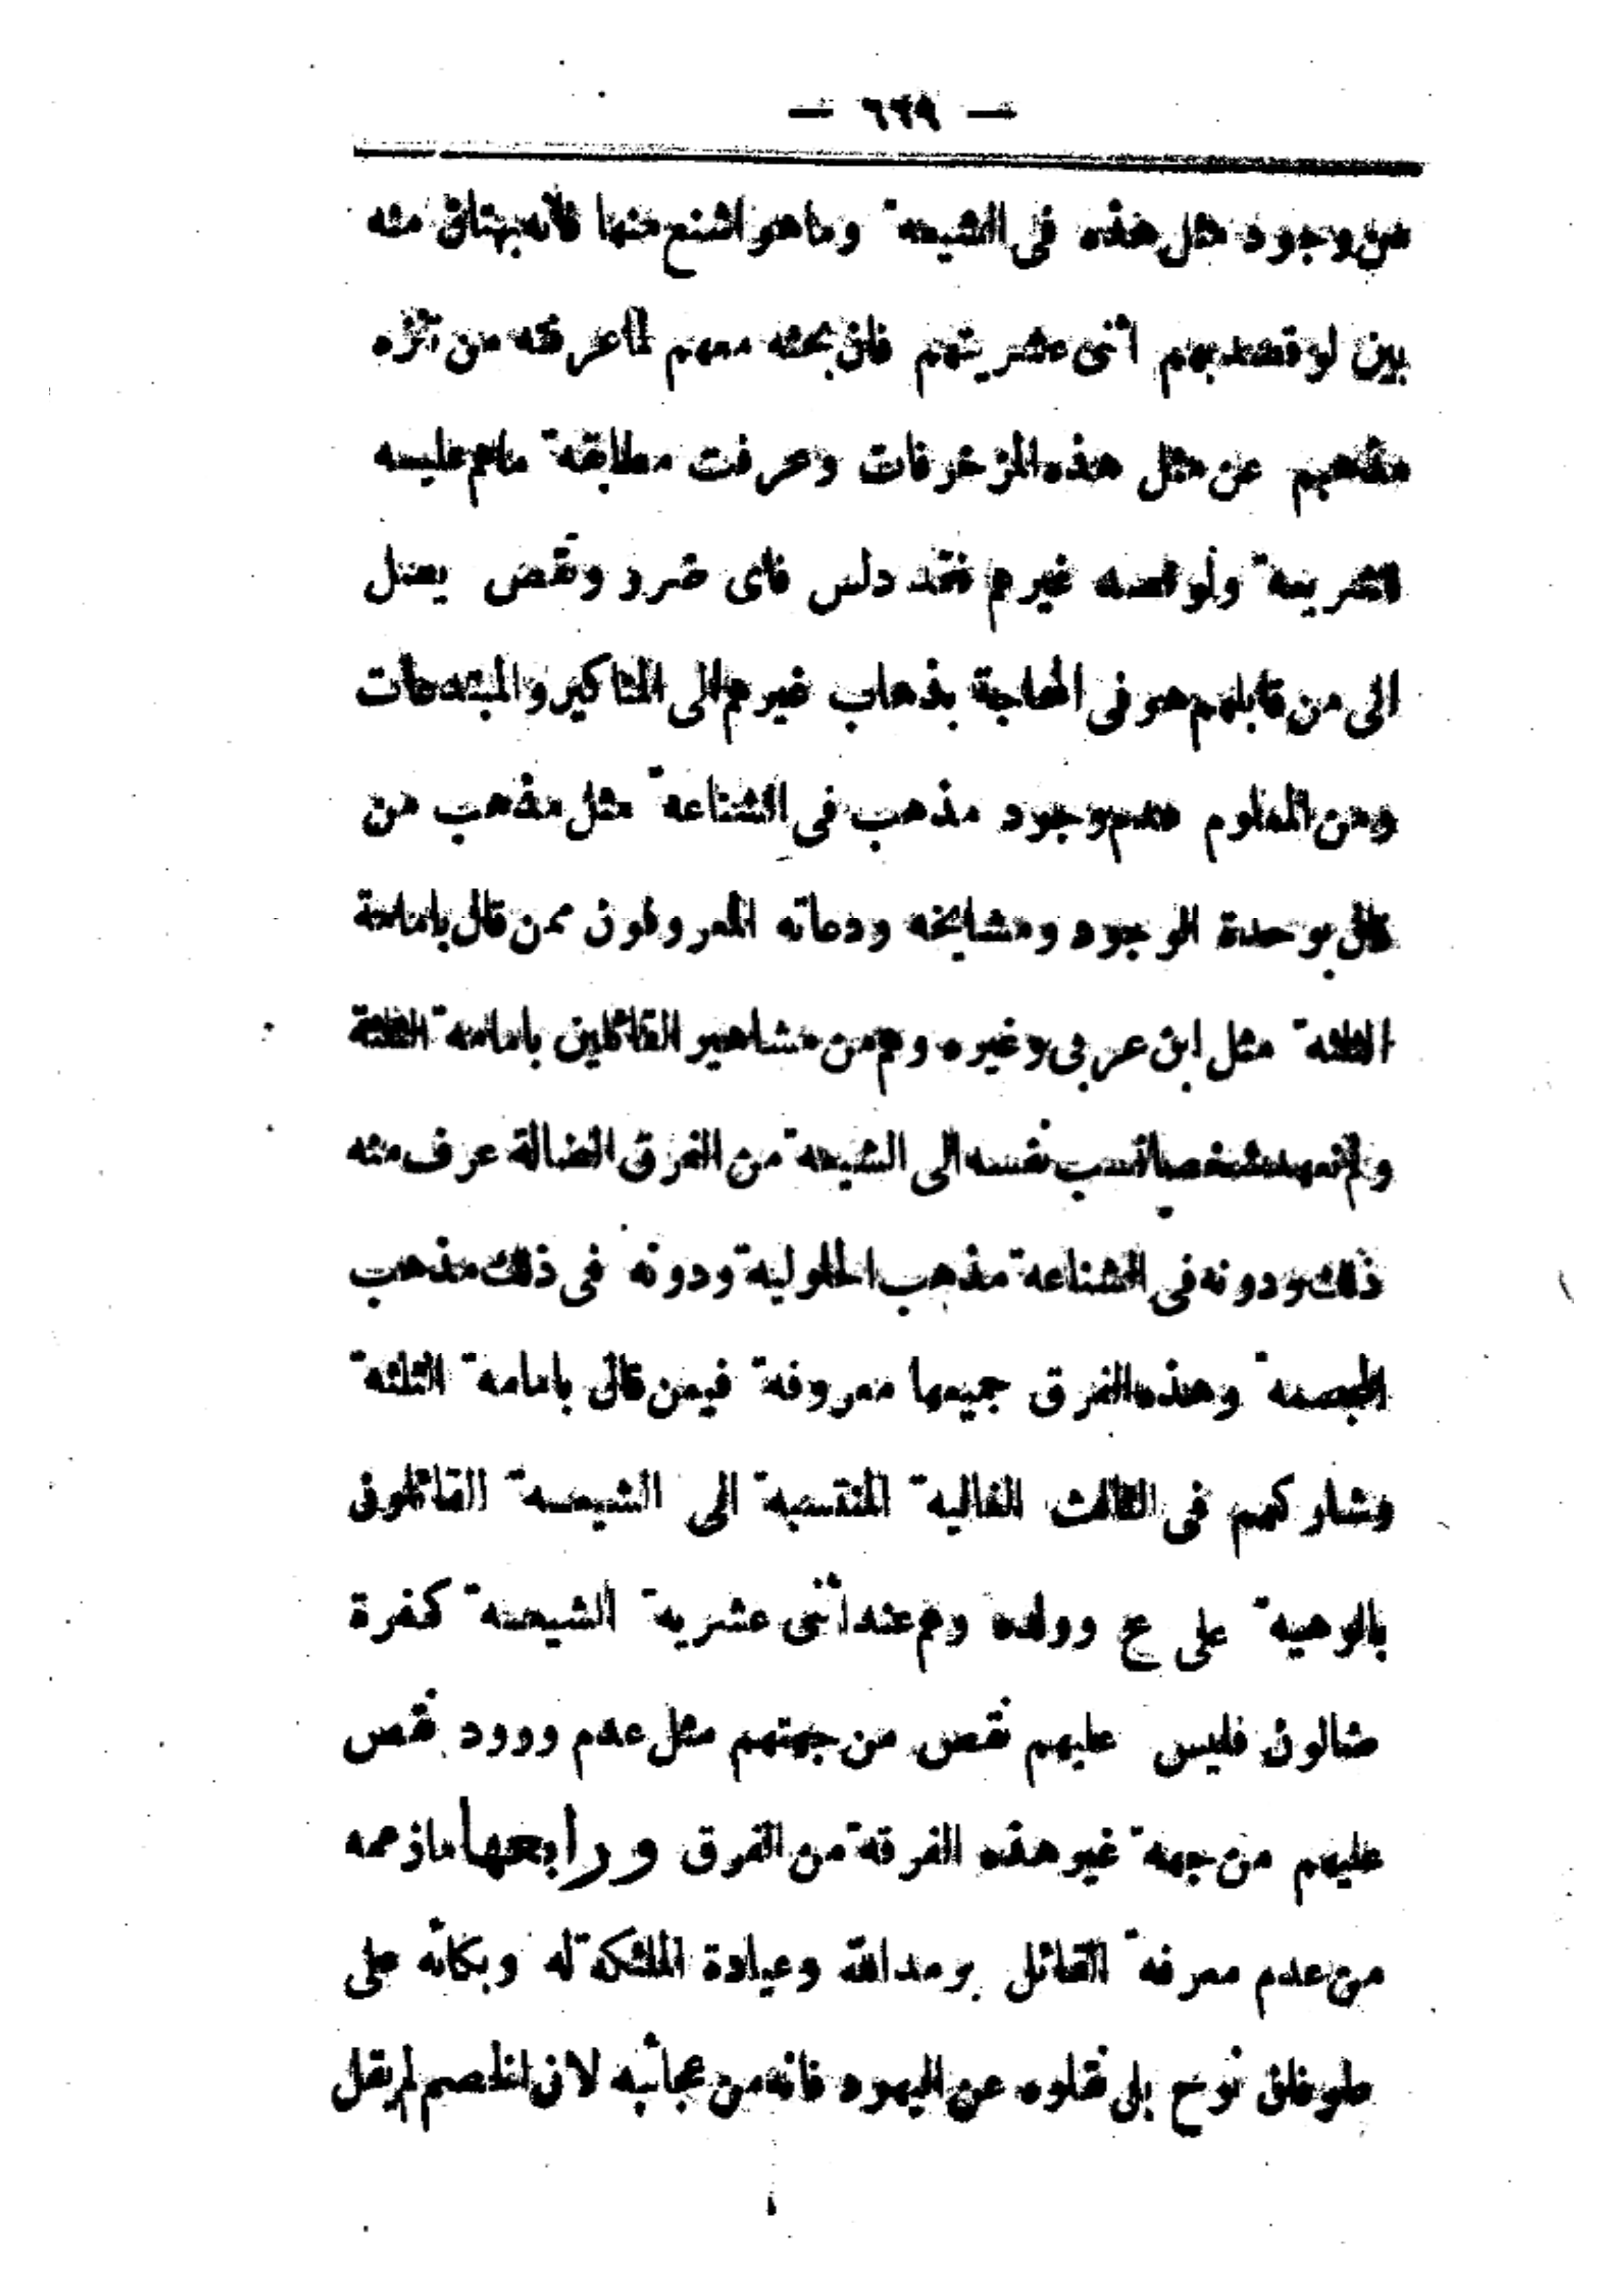 — ٦٢٩ —
من وجود مثل هذه فى الشيعة وما هو اشنع منها فانه بهتان منه
بين لو قصد بهم اثنى عشريتهم فان بحثه معهم لما عرفته من تنزه
مذهبهم عن مثل هذه المزخرفات وعرفت مطابقة ماهم عليه
للشريعة ولو قصد غيرهم فقد دلس فاى ضرر ونقص يصل
الى من قابلهم هو فى المحاجة بذهاب غيرهم الى المناكير والمبتدعات
ومن المعلوم عدم وجود مذهب فى الشناعة مثل مذهب من
قال بوحدة الوجود ومشايخه ودعاته المعروفون ممن قال بامامة
الثلثة مثل ابن عربى وغيره وهم من مشاهير القائلين بامامة الثلثة
ولم نعهد شخصيا نسب نفسه الى الشيعة من الفرق الضالة عرف منه
ذلك ودونه فى الشناعة مذهب الحلولية ودونه فى ذلك مذهب
المجسمة وهذه الفرق جميعها معروفة فيمن قال بامامة الثلثة
وشاركهم فى الثالث الغالية المنتسبة الى الشيعة القائلون
بالوهية على ع وولده وهم عند اثنى عشرية الشيعة كفرة
ضالون فليس عليهم نقص من جهتهم مثل عدم ورود نقص
عليهم من جهة غير هذه الفرقة من الفرق ورابعها مازعمه
من عدم معرفة القائل برمد الله وعيادة الملئكة له وبكائه على
طوفان نوح بلى نقلوه عن اليهود فانه من عجائبه لان الخصم لم يقل